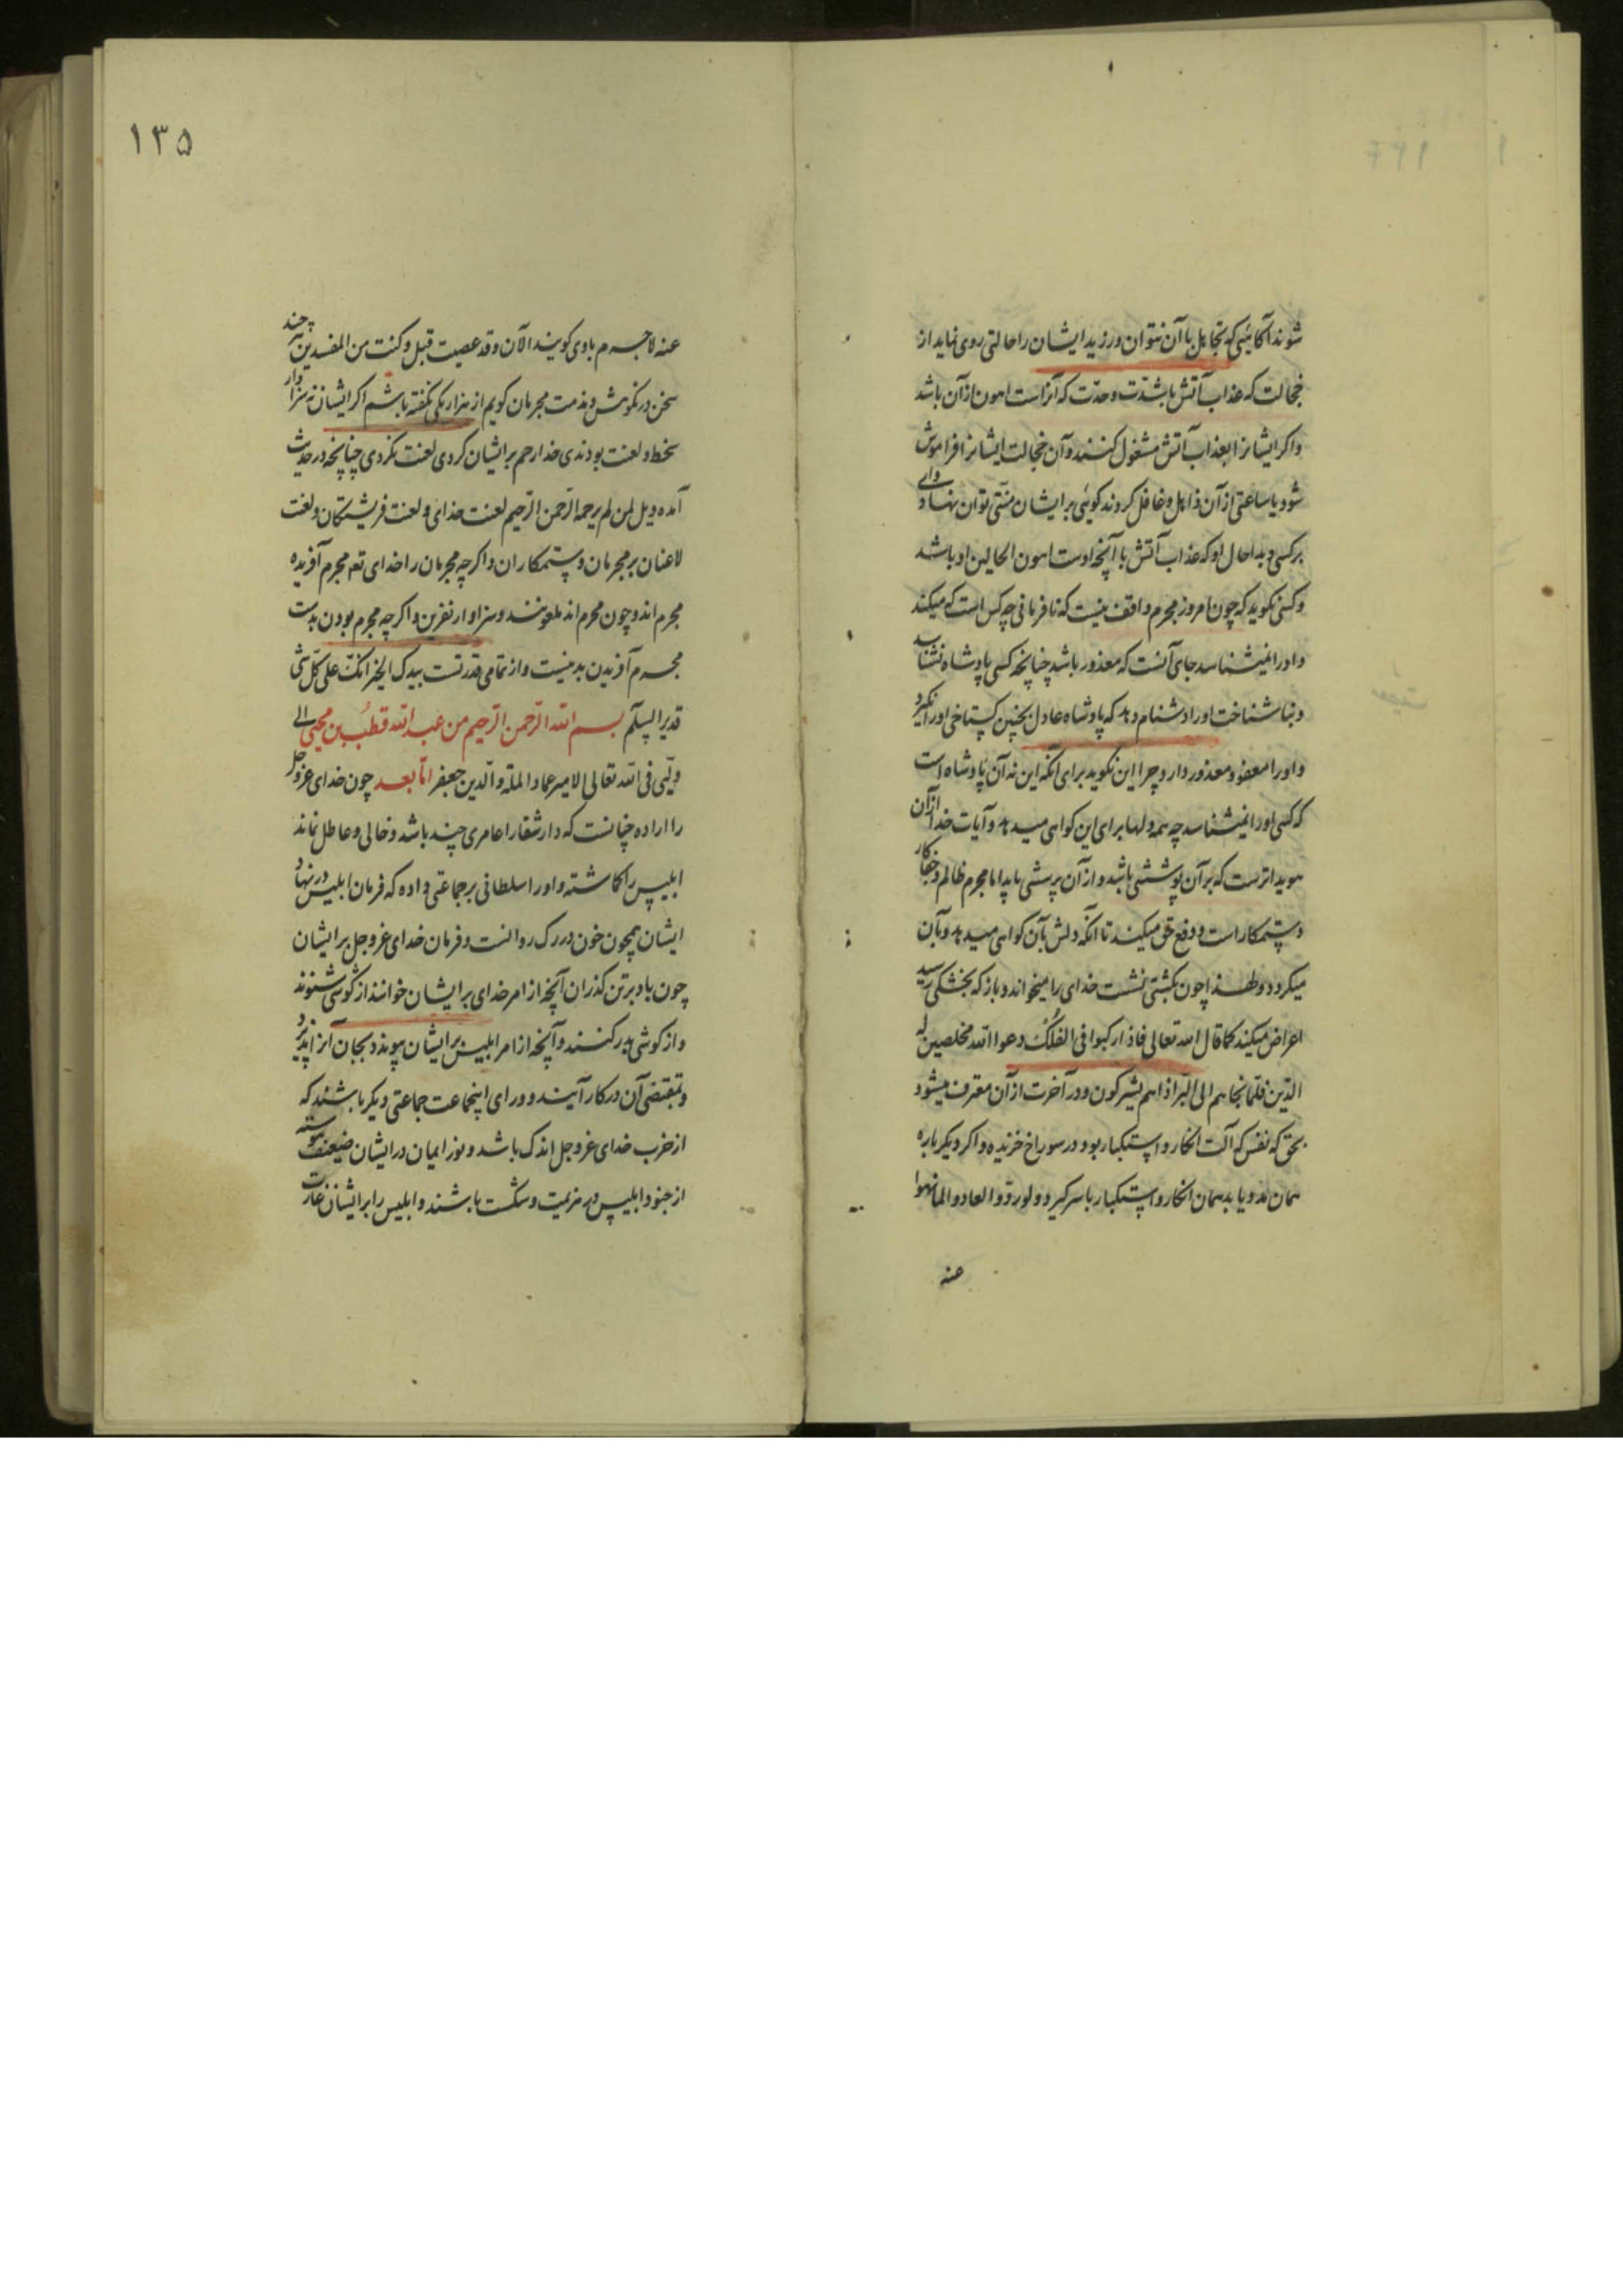 شوند آگاهیی که تجاهل با آن نتوان ورزید ایشان را حالتی روی نماید از
خجالت که عذاب آتش با شدت و حدت که آنراست اهون از آن باشد
و اکر ایشانرا بعذاب آتش مشغول کنند و آن خجالت ایشانرا فراموش
شود یا ساعتی از آن ذاهل و غافل کردند کوئی بر ایشان منتی توان نهاد وای
بر کسی و بدا حال او که عذاب آتش با آنچه اوست اهون الحالین او باشد
و کسی نکوید که چون امروز مجرم واقف نیست که نافرمانی چه کس است که میکند
و او را نمیشناسد جای آنست که معذور باشد چنانچه کسی پادشاه نشناسد
و بنا شناخت او را دشنام دهد که پادشاه عادل بچنین کستاخی او را نکیرد
و او را معفو و معذور دارد چرا این نکوید برای آنکه این نه آن پادشاه است
که کسی او را نمیشناسد چه همه دلها برای این کواهی میدهد و آیات خدا از آن
هویداترست که بر آن پوششی باشد و از آن پرسشی باید اما مجرم ظالم و جفا کار
و ستمکار است و دفع حق میکند تا آنکه دلش بآن کواهی میدهد و بآن
میکرود و لهذا چون بکشتی نشست خدای را میخواند و باز که بخشکی رسید
اعراض میکند کما قال الله تعالی فاذا رکبوا فی الفلک دعوا الله مخلصین له
الدین فلما نجاهم الی البر اذا هم یشرکون و در آخرت از آن معترف میشود
بحق که نفس که آلت انکار و استکبار بود در سوراخ خزیده و اکر دیکر باره
همان مدد یابد همان انکار و استکبار با سر کیرد و لو ردوا لعادوا لما نهوا
عنه
۱۳۵
عنه لاجرم باوی کویند الآن و قد عصیت قبل و کنت من المفسدین هر چند
سخن در نکوهش و مذمت مجرمان کویم از هزار یکی نکفته باشم اکر ایشان نه سزاوار
سخط و لعنت بودندی خدا رحم بر ایشان کردی لعنت نکردی چنانچه در حدیث
آمده ویل لمن لم یرحمه الرحمن الرحیم لعنت خدای و لعنت فریشتکان و لعنت
لاعنان بر مجرمان و ستمکاران و اکر چه مجرمان را خدای تعه مجرم آفریده
مجرم اند و چون مجرم اند ملعونند و سزاوار نفرین و اکر چه مجرم بودن بدست
مجرم آفریدن بد نیست و از تمامی قدرتست بیدک الخیر انک علی کل شی
قدیر السلم بسم الله الرحمن الرحیم من عبد الله قطب بن محیی الی
ولیی فی الله تعالی الامیر عماد الملة والدین جعفر اما بعد چون خدای عز و جل
را اراده چنانست که دار شقا را عامری چند باشد و خالی و عاطل نماند
ابلیس را کماشته و او را سلطانی بر جماعتی داده که فرمان ابلیس در نهاد
ایشان همچون خون در رک روانست و فرمان خدای عز و جل بر ایشان
چون باد بر تن کذران آنچه از امر خدای بر ایشان خوانند از کوشی شنوند
و از کوشی بدر کنند و آنچه از امر ابلیس بر ایشان پیوندد بجان آنرا پذیرد
و بمقتضی آن در کار آیند و ورای اینجماعت جماعتی دیکر باشند که
از حزب خدای عز و جل اندک باشد و نور ایمان در ایشان ضعیف پیوسته
از جنود ابلیس در هزیمت و شکست باشند و ابلیس را بر ایشان غارت